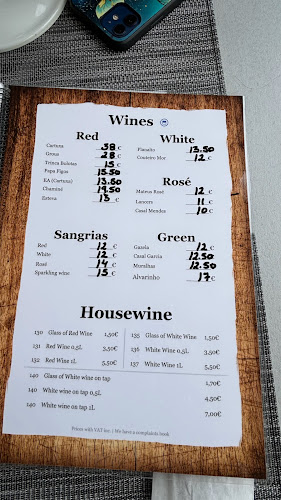 Wines
Red
Cartuxa 38 €
Grous 28 €
Trinca Bolotas 15 €
Papa Figos 15.50
EA (Cartuxa) 13.50
Chaminé 19.50
Esteva 13 €
White
Planalto 13.50
Couteiro-Mor 12 €
Rosé
Mateus Rosé 12 €
Lancers 11 €
Casal Mendes 10 €
Sangrias
Red 12 €
White 12 €
Rosé 14 €
Sparkling wine 15 €
Green
Gazela 12 €
Casal Garcia 12.50
Muralhas 12.50
Alvarinho 17 €
Housewine
130 Glass of Red Wine 1,50€
131 Red Wine 0,5L 3,50€
132 Red Wine 1L 5,50€
135 Glass of White Wine 1,50€
136 White Wine 0,5L 3,50€
137 White Wine 1L 5,50€
140 Glass of White wine on tap 1,70€
140 White wine on tap 0,5L 4,50€
140 White wine on tap 1L 7,00€
Prices with VAT Inc. | We have a complaints book